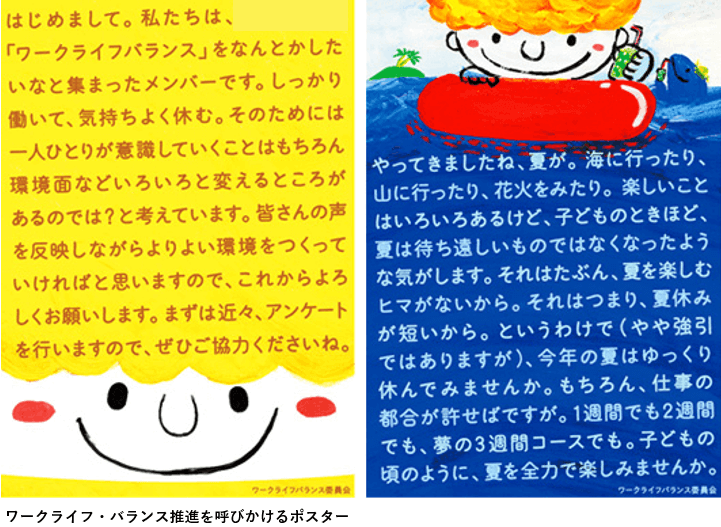 はじめまして。私たちは、
「ワークライフバランス」をなんとかした
いなと集まったメンバーです。しっかり
働いて、気持ちよく休む。そのためには
一人ひとりが意識していくことはもちろん
環境面などいろいろと変えるところが
あるのでは?と考えています。皆さんの声
を反映しながらよりよい環境をつくって
いければと思いますので、これからよろ
しくお願いします。まずは近々、アンケート
を行いますので、ぜひご協力くださいね。
ワークライフバランス委員会
やってきましたね、夏が。海に行ったり、
山に行ったり、花火をみたり。楽しいこと
はいろいろあるけど、子どものときほど、
夏は待ち遠しいものではなくなったよう
な気がします。それはたぶん、夏を楽しむ
ヒマがないから。それはつまり、夏休み
が短いから。というわけで(やや強引
ではありますが)、今年の夏はゆっくり
休んでみませんか。もちろん、仕事の
都合が許せばですが。1週間でも2週間
でも、夢の3週間コースでも。子どもの
頃のように、夏を全力で楽しみませんか。
ワークライフバランス委員会
ワークライフ・バランス推進を呼びかけるポスター